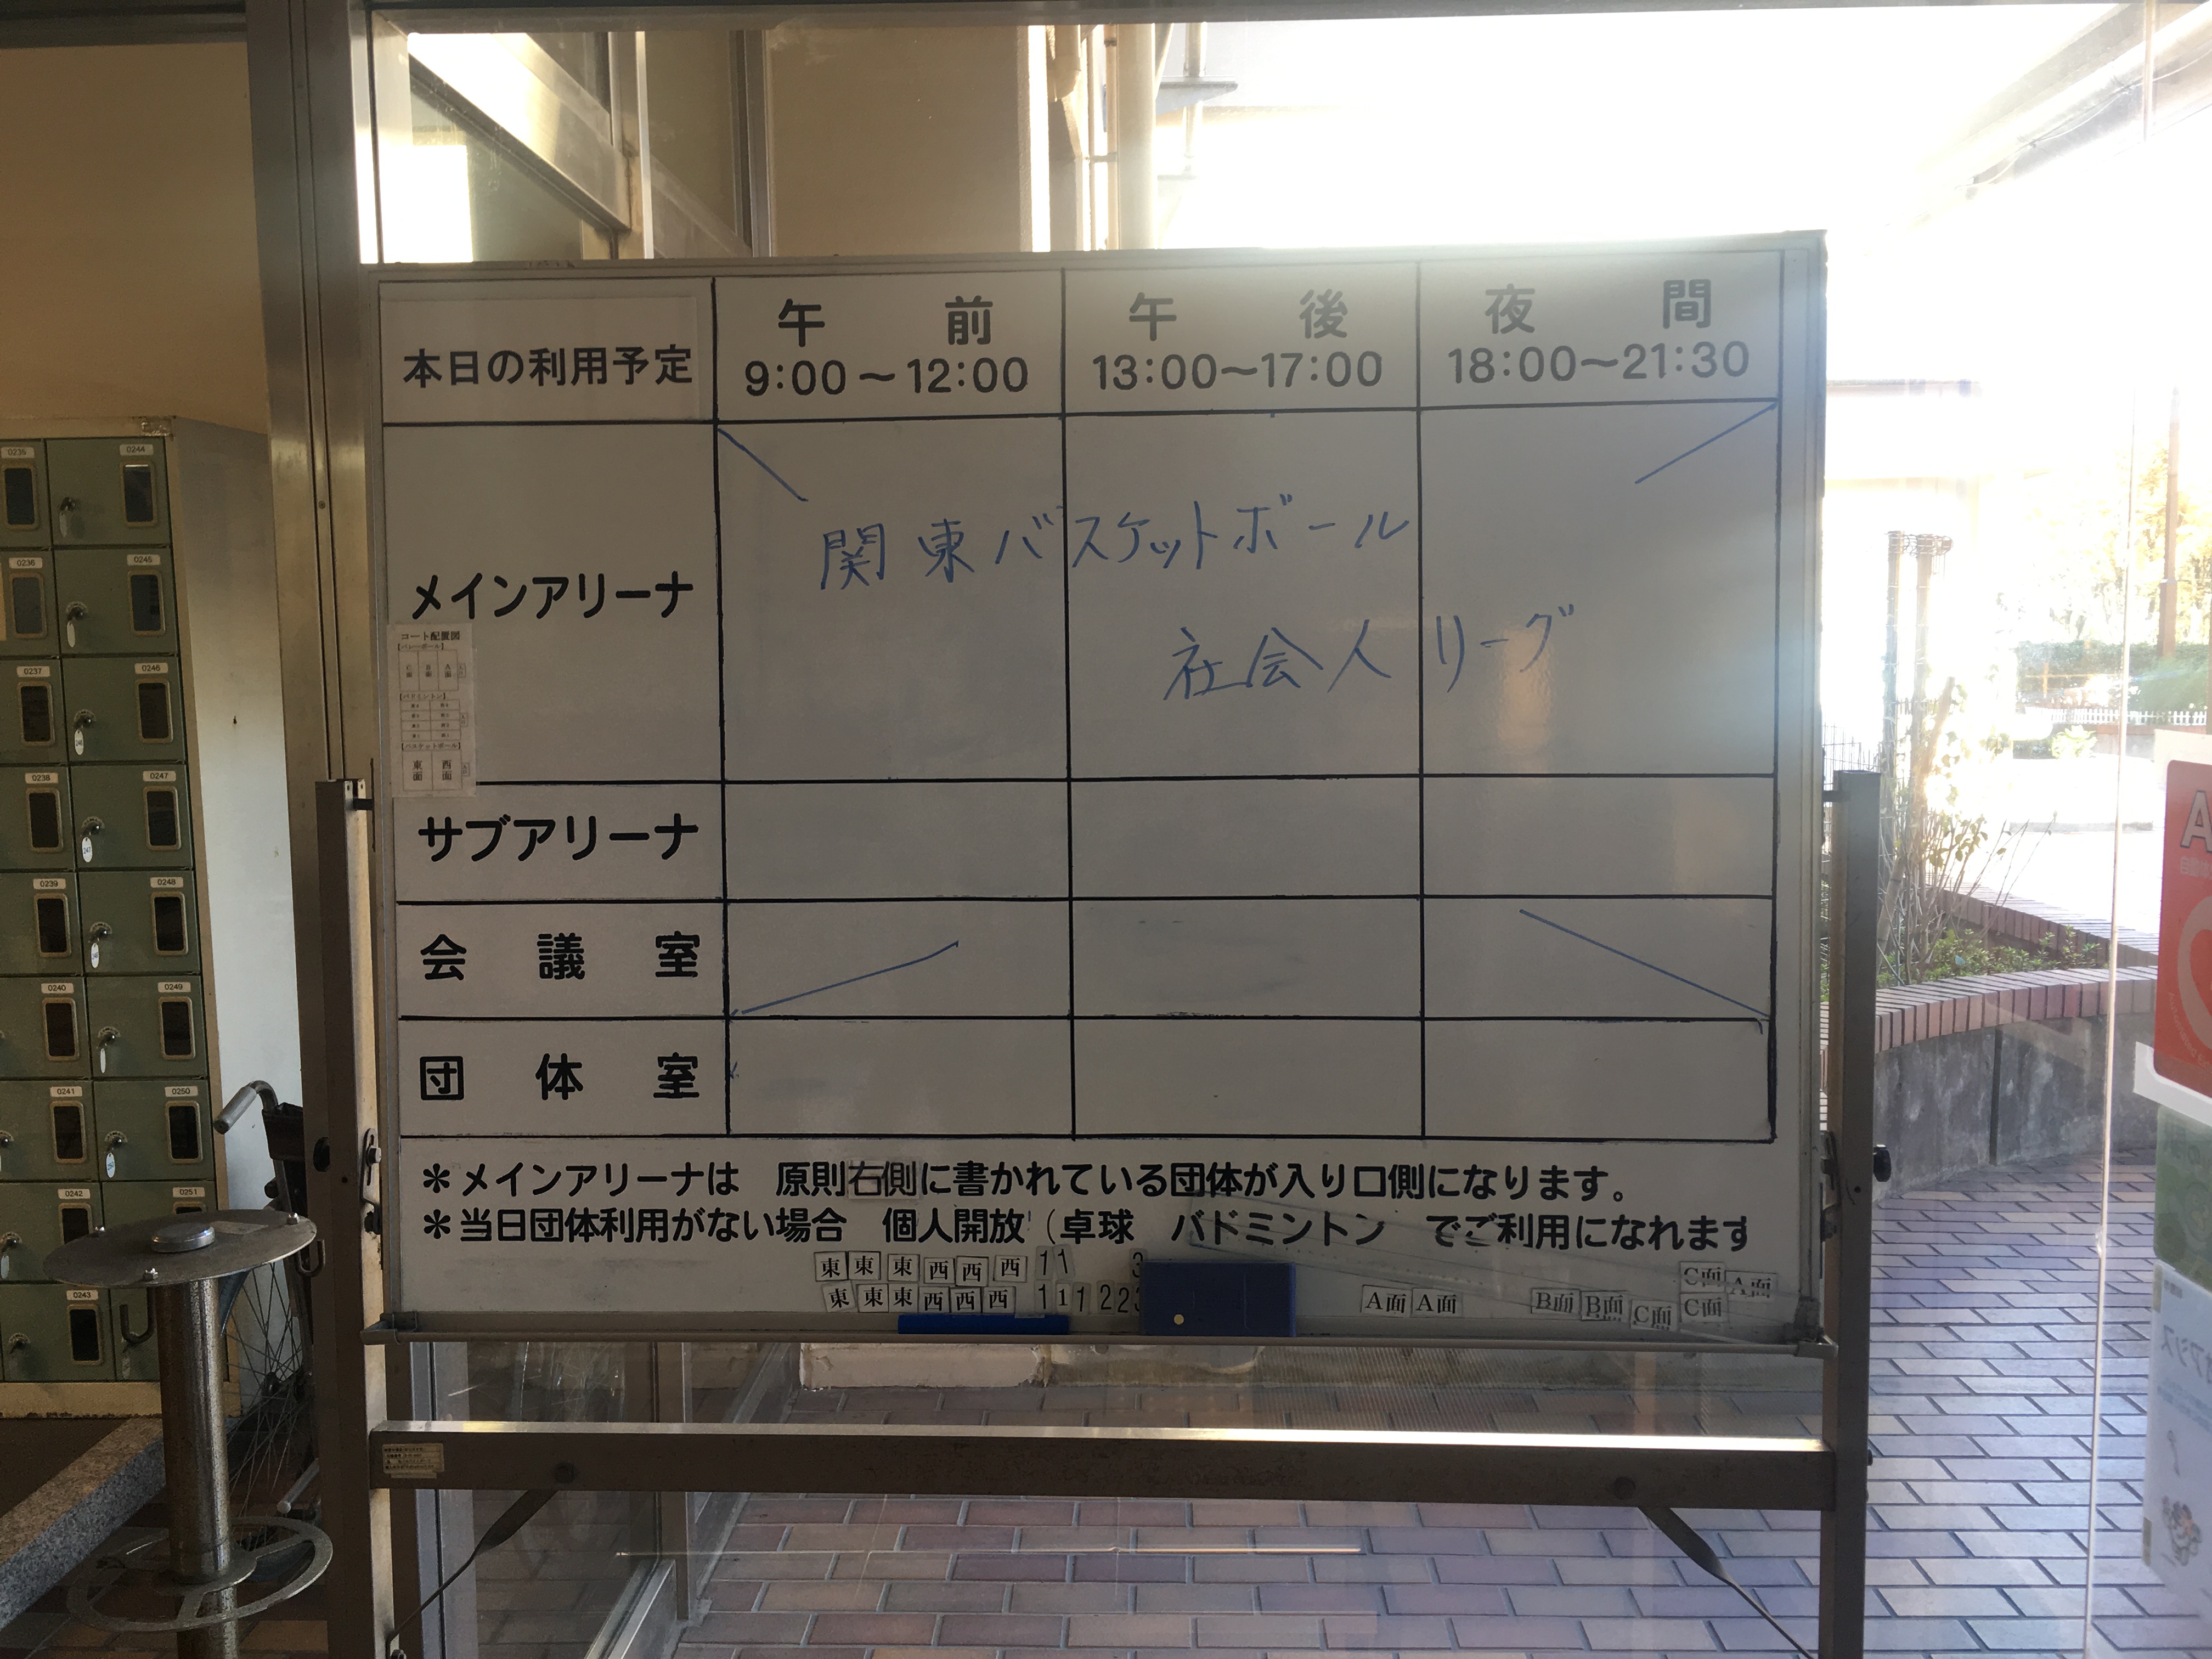 午 前
午 後
夜 間
本日の利用予定
9:00～12:00
13:00～17:00
18:00～21:30
メインアリーナ
関東バスケットボール
社会人リーグ
コート配置図
【バレーボール】
C面 B面 A面
【バドミントン】
【バスケットボール】
東面 西面
サブアリーナ
会 議 室
団 体 室
＊メインアリーナは 原則右側に書かれている団体が入り口側になります。
＊当日団体利用がない場合 個人開放（卓球 バドミントン でご利用になれます
東 東 東 西 西 西 1 1 3
C面 A面
東 東 東 西 西 西 1 1 1 2 2 3
A面 A面 B面 B面 C面 C面
0235 0244
0236 0245
0237 0246
0238 0247
0239 0248
0240 0249
0241 0250
0242 0251
0243